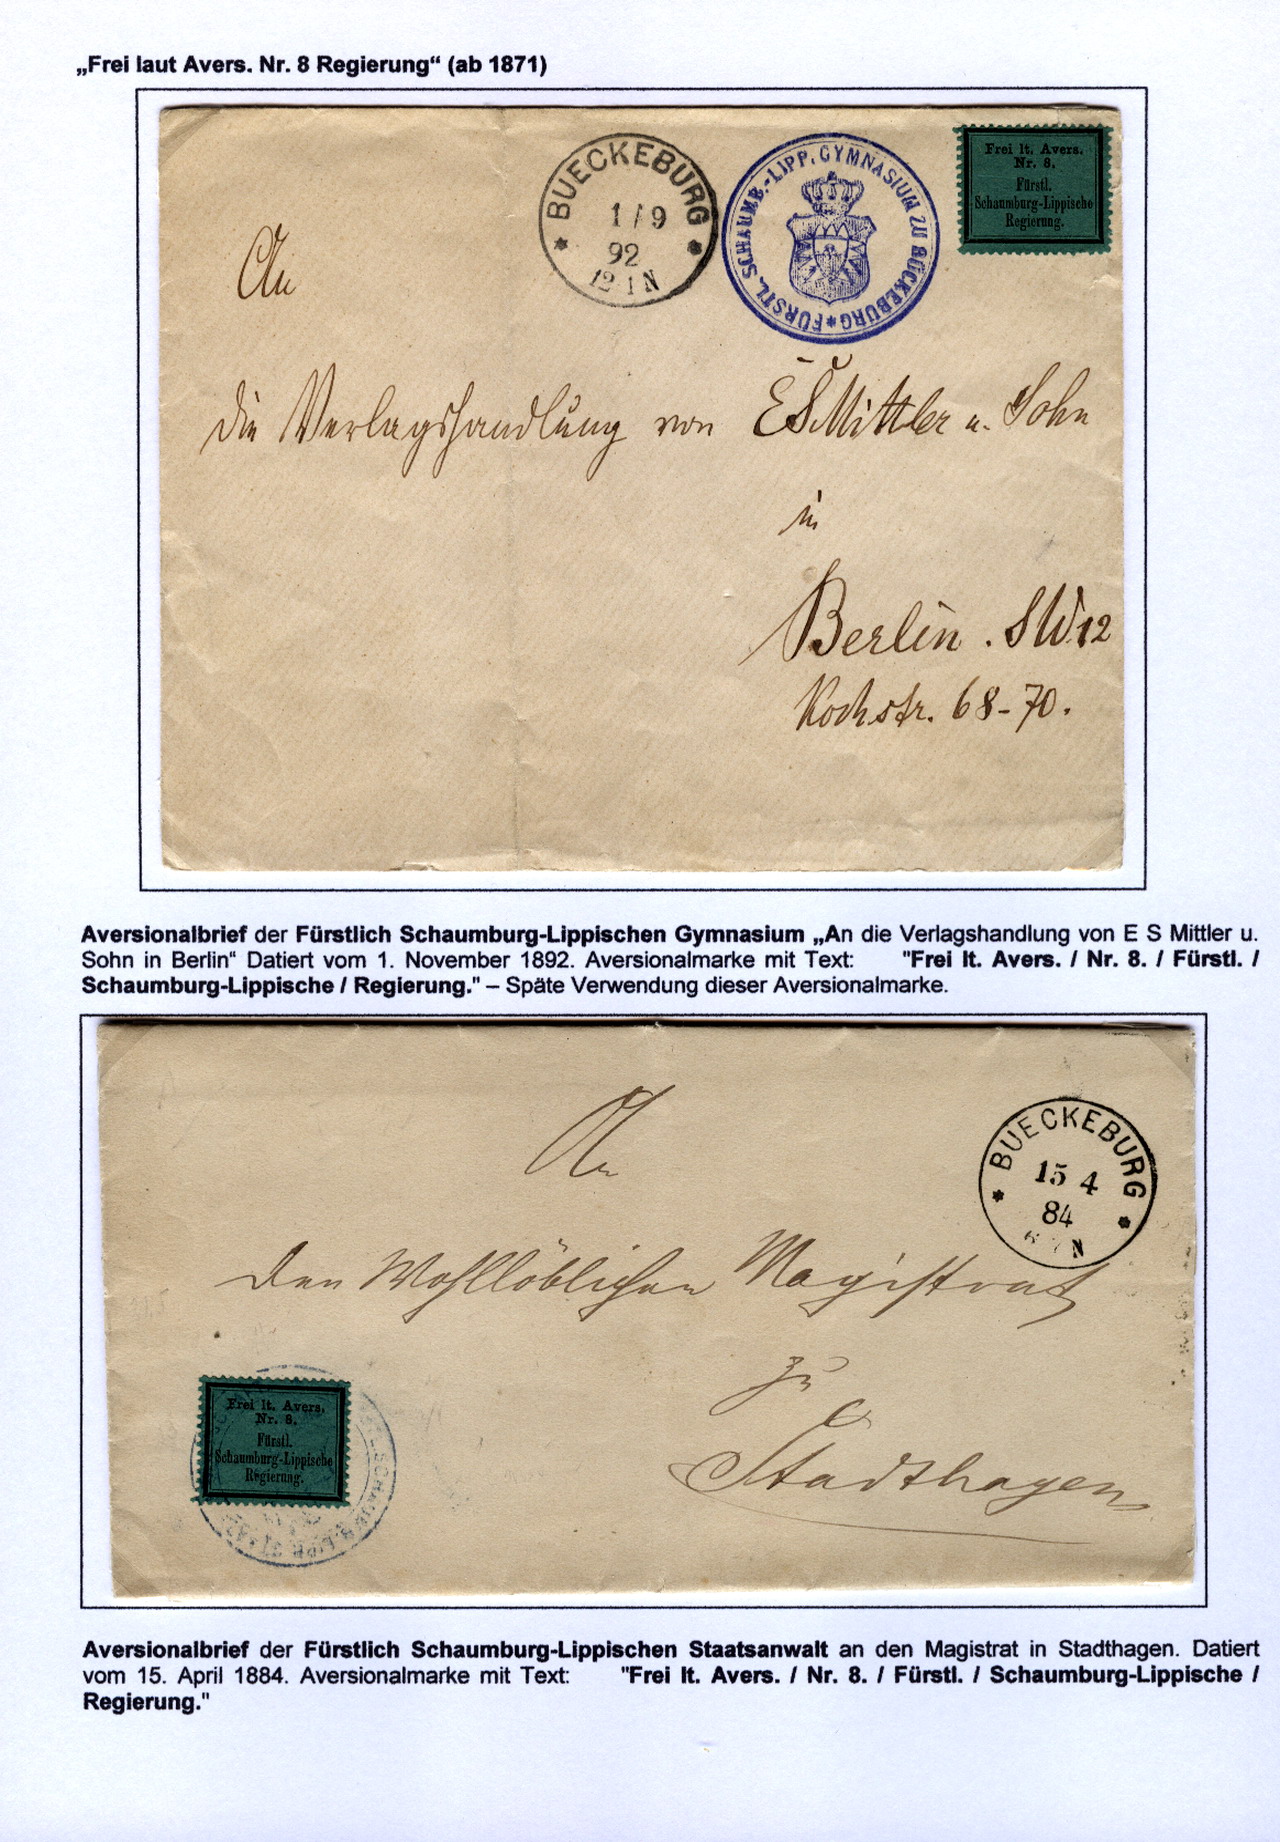 „Frei laut Avers. Nr. 8 Regierung“ (ab 1871)
BUECKEBURG
1/9
92
12-1N
FÜRSTL. SCHAUMB.-LIPP. GYMNASIUM ZU BÜCKEBURG
Frei lt. Avers.
Nr. 8.
Fürstl.
Schaumburg-Lippische
Regierung.
An
die Verlagshandlung von E S Mittler u. Sohn
in
Berlin. SW12
Kochstr. 68-70.
Aversionalbrief der Fürstlich Schaumburg-Lippischen Gymnasium „An die Verlagshandlung von E S Mittler u.
Sohn in Berlin“ Datiert vom 1. November 1892. Aversionalmarke mit Text: "Frei lt. Avers. / Nr. 8. / Fürstl. /
Schaumburg-Lippische / Regierung." – Späte Verwendung dieser Aversionalmarke.
BUECKEBURG
15 4
84
N
An
den Wohllöblichen Magistrat
zu
Stadthagen
Frei lt. Avers.
Nr. 8.
Fürstl.
Schaumburg-Lippische
Regierung.
SCHAUMB.-LIPP.
Aversionalbrief der Fürstlich Schaumburg-Lippischen Staatsanwalt an den Magistrat in Stadthagen. Datiert
vom 15. April 1884. Aversionalmarke mit Text: "Frei lt. Avers. / Nr. 8. / Fürstl. / Schaumburg-Lippische /
Regierung."